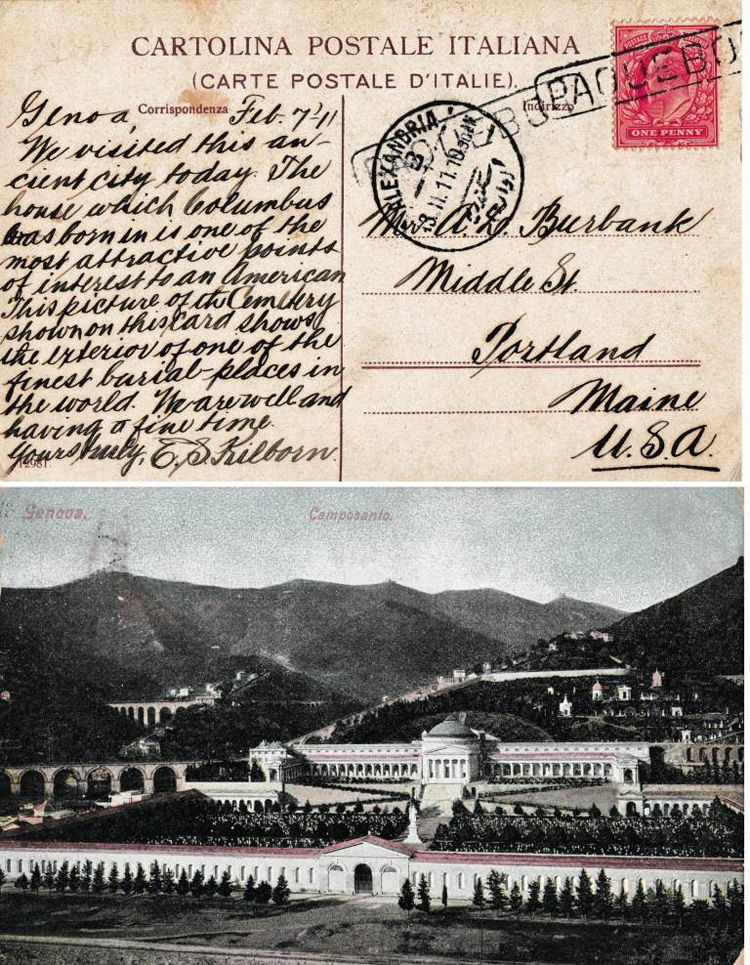 CARTOLINA POSTALE ITALIANA
(CARTE POSTALE D'ITALIE).
Corrispondenza
Indirizzo
PAQUEBO
ONE PENNY
ALEXANDRIA
8. II. 11. 10
Genoa, Feb. 7" '11
We visited this an-
cient city today. The
house which Columbus
was born in is one of the
most attractive points
of interest to an American
This picture of the Cemetery
shown on this card shows
the exterior of one of the
finest burial-places in
the world. We are well and
having a fine time.
Yours truly, E. S. Kilborn.
12981
A. D. Burbank
Middle St.
Portland
Maine
U.S.A.
Genova.
Camposanto.